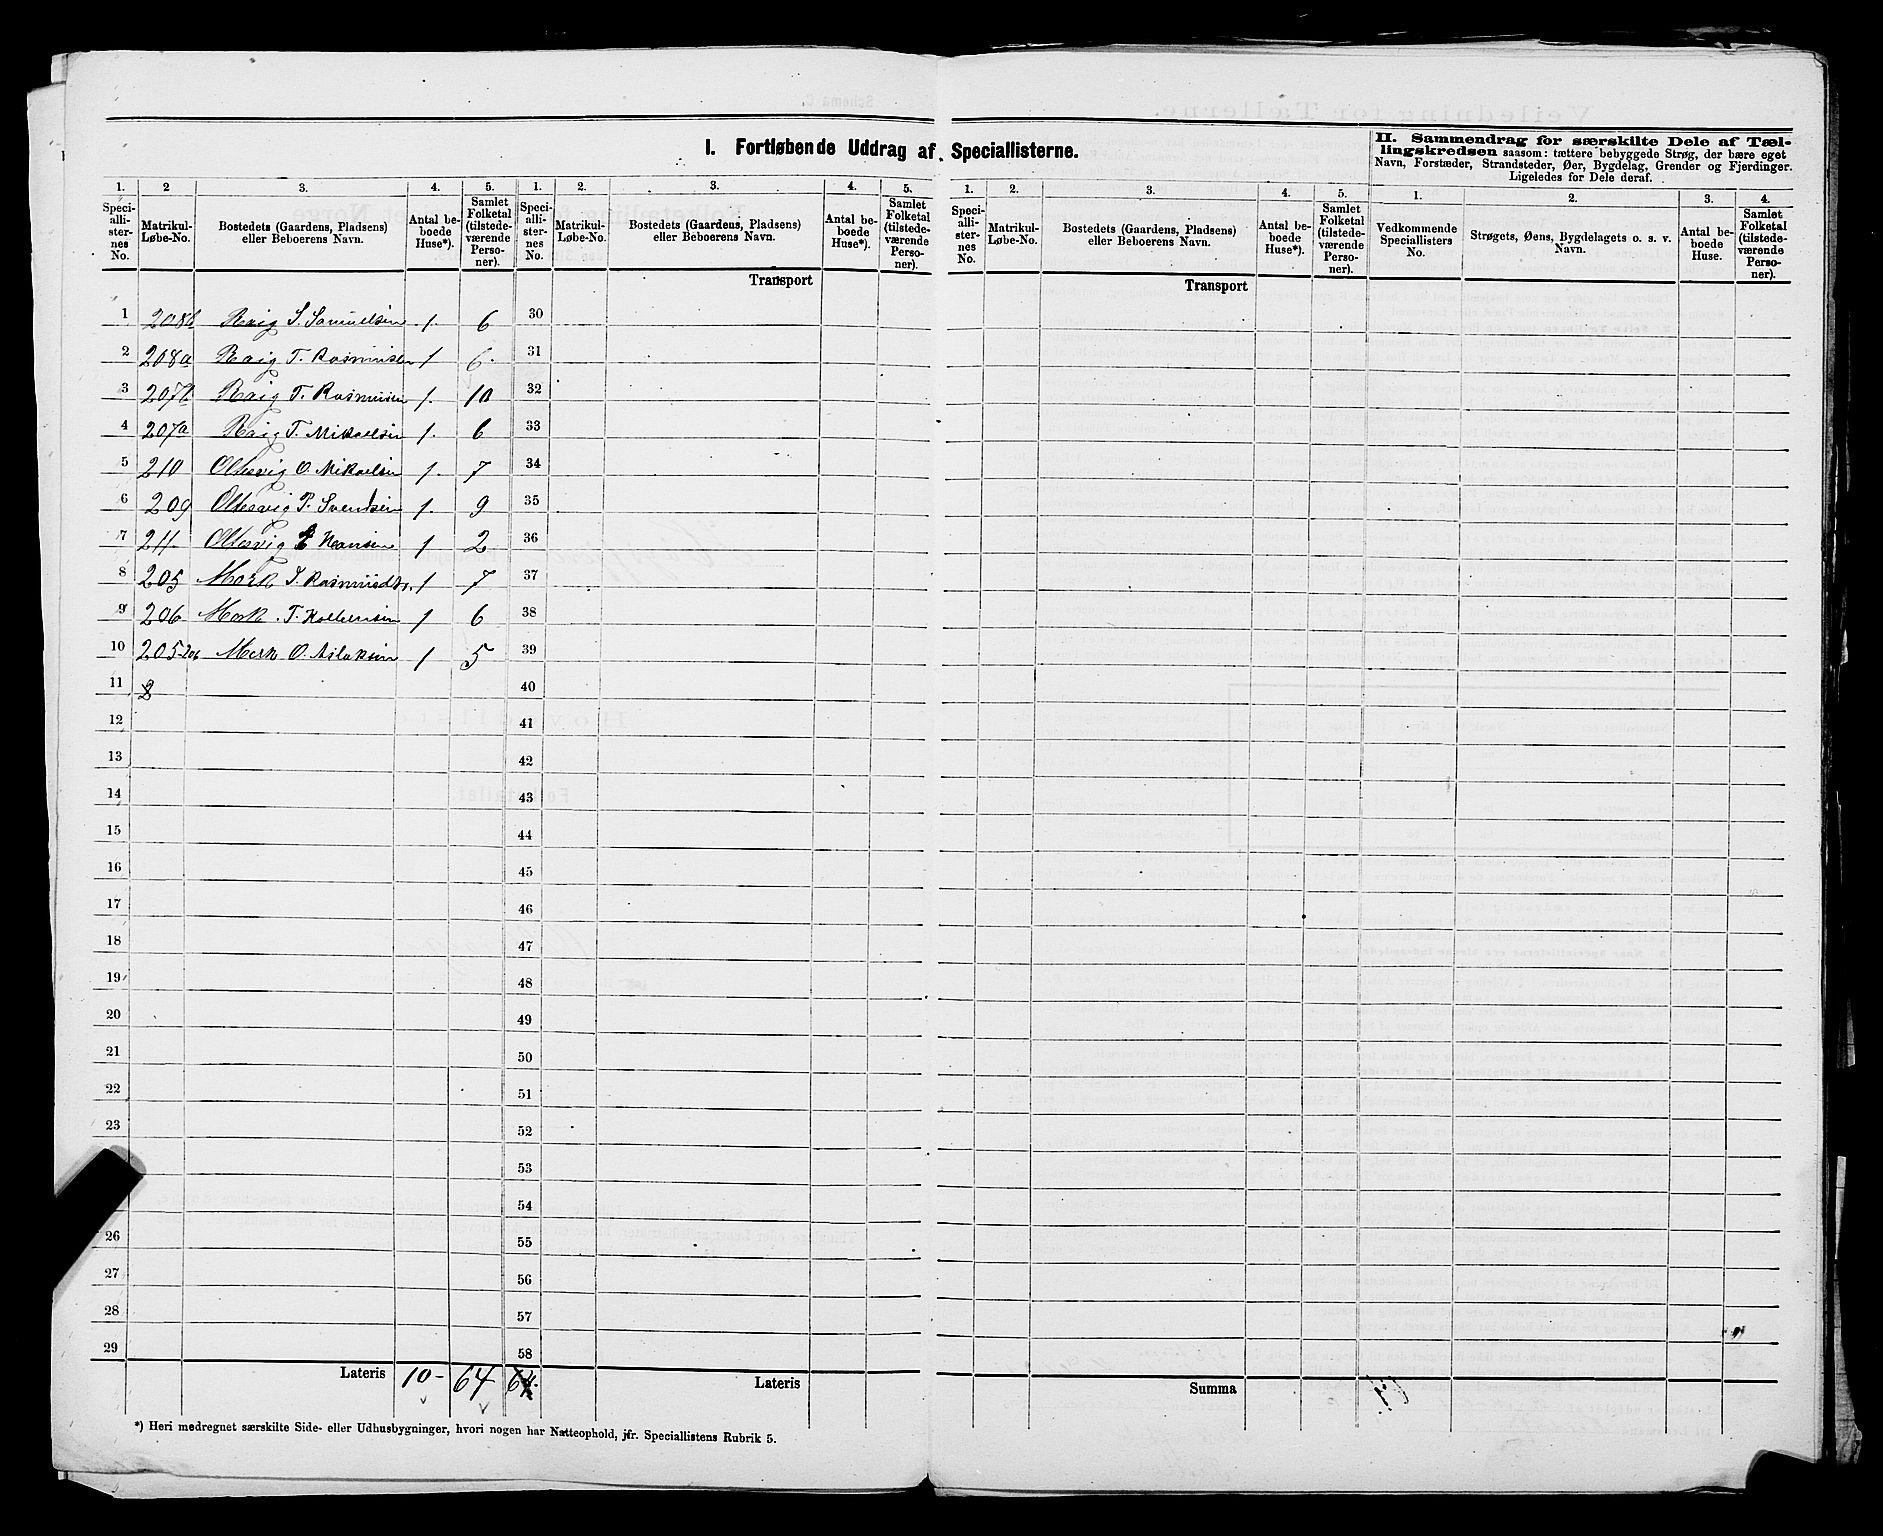 I. Fortløbende Uddrag af Speciallisterne.
II. Sammendrag for særskilte Dele af Tæl-
lingskredsen saasom: tættere bebyggede Strøg, der bære eget
Navn, Forstæder, Strandsteder, Øer, Bygdelag, Grender og Fjerdinger.
Ligeledes for Dele deraf.
1. 2 3. 4. 5. 1. 2. 3. 4. 5. 1. 2. 3. 4. 5. 1. 2. 3. 4.
Speciallisternes No. Matrikul-Løbe-No. Bostedets (Gaardens, Pladsens) eller Beboerens Navn. Antal beboede Huse*). Samlet Folketal (tilstedeværende Personer).
Speciallisternes No. Matrikul-Løbe-No. Bostedets (Gaardens, Pladsens) eller Beboerens Navn. Antal beboede Huse*). Samlet Folketal (tilstedeværende Personer).
Speciallisternes No. Matrikul-Løbe-No. Bostedets (Gaardens, Pladsens) eller Beboerens Navn. Antal beboede Huse*). Samlet Folketal (tilstedeværende Personer).
Vedkommende Speciallisters No. Strøgets, Øens, Bygdelagets o. s. v. Navn. Antal beboede Huse. Samlet Folketal (tilstedeværende Personer).
Transport Transport
1 208b Røig S. Samuelsen 1. 6 30
2 208a Røig T. Rasmusen 1 6. 31
3 207b Røig T. Rasmusen 1. 10 32
4 207a Røig T. Mikaelsen 1. 6 33
5 210 Oltesvig O. Mikaelsen 1. 7 34
6 209 Oltesvig P. Svendsen 1. 9 35
7 211 Oltesvig Hansen 1 2 36
8 205 Mork S. Rasmusdtr. 1 7 37
9 206 Mork T. 1 6 38
10 205-206 Mork O. Aslaksen 1 5 39
11 40
12 41
13 42
14 43
15 44
16 45
17 46
18 47
19 48
20 49
21 50
22 51
23 52
53
54
26 55
27 56
28 57
29 58
Lateris 10- 64 64. Lateris Summa
*) Heri medregnet særskilte Side- eller Udhusbygninger, hvori nogen har Natteophold, jfr. Speciallistens Rubrik 5.